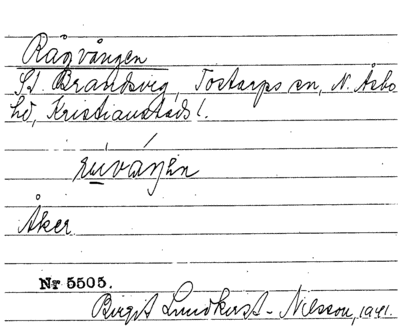 Rågvången
St. Brandsvig, Tostarps sn, N. Åsbo
hd, Kristianstads l.
Åker
Nr 5505.
Birgit Lundkvist-Nilsson, 1941.